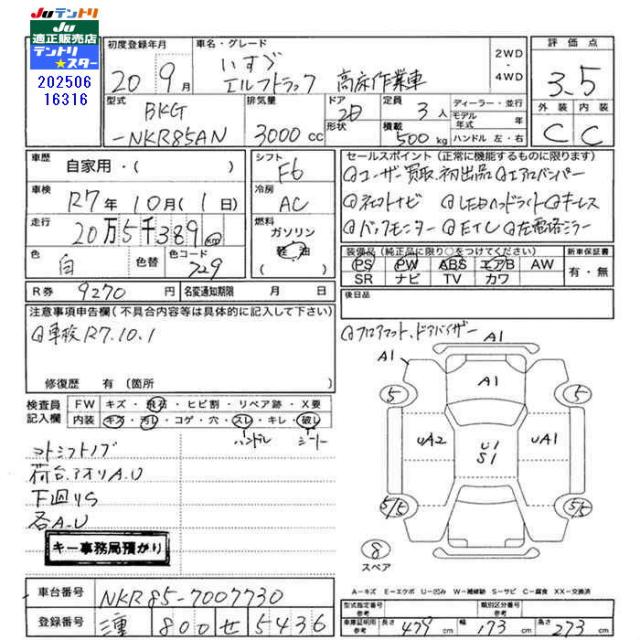 JUテントリ
JU
適正販売店
テントリ
★スター
202506
16316
初度登録年月 車名・グレード 2WD・4WD 評価点
20年9月 いすゞ エルフトラック 高床作業車 3.5
外装 内装
C C
型式 排気量 ドア 形状 定員 積載 ディーラー・並行
モデル年式 年式
ハンドル 左・右
BKG-NKR85AN 3000cc 2D 3人 500kg
車歴 自家用・( ) シフト F6
車検 R7年10月(1日) 冷房 AC
走行 20万5千389km 燃料 ガソリン 軽油
色 白 色替 色コード 729
R券 9270円 名変通知期限 月 日
セールスポイント(正常に機能するものに限ります)
@ユーザー買取、初出品 @エアロバンパー
@ネットナビ @LEDヘッドライト @キーレス
@バックモニター @ETC @左電格ミラー
装備品(純正品に限り○をつけてください) 新車保証書
PS PW ABS エアB AW 有・無
SR ナビ TV カワ
後日品
注意事項申告欄(不具合内容等は具体的に記入して下さい)
@車検R7.10.1
修復歴 有(箇所 )
@フロアマット、ドアバイザー
検査員記入欄 FW キズ・飛石・ヒビ割・リペア跡・X要
内装 キズ・汚レ・コゲ・穴・スレ・キレ・破レ
ハンドル シート
荷台、アオリA.U
下廻りS
各A.U
キー事務局預かり
A1
A1 A1
5 5
UA2 U1 S1 UA1
5/5 5/5
8
スペア
A-キズ E-エクボ U-凹み W-補修跡 S-サビ C-腐食 XX-交換済
車台番号 NKR85-7007730
登録番号 三重 800 せ 5436
型式指定番号 参考 類別区分番号 参考
車庫証明用 参考 長さ 479cm 幅 173cm 高さ 273cm